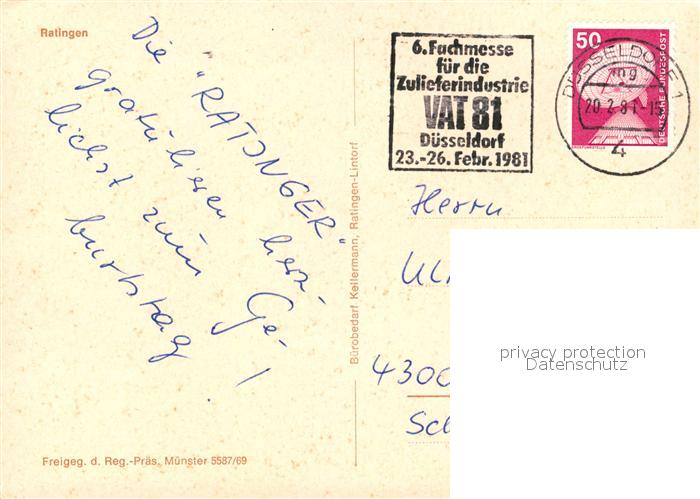 Ratingen
Die "RATINGER"
gratulieren herz-
lichst zum Ge-
burtstag !
Freigeg. d. Reg.-Präs. Münster 5587/69
Bürobedarf Kellermann, Ratingen-Lintorf
6. Fachmesse
für die
Zulieferindustrie
VAT 81
Düsseldorf
23.-26. Febr. 1981
50
DEUTSCHE BUNDESPOST
DÜSSELDORF 1
20.2.81-15
4
Herrn
4300
privacy protection
Datenschutz